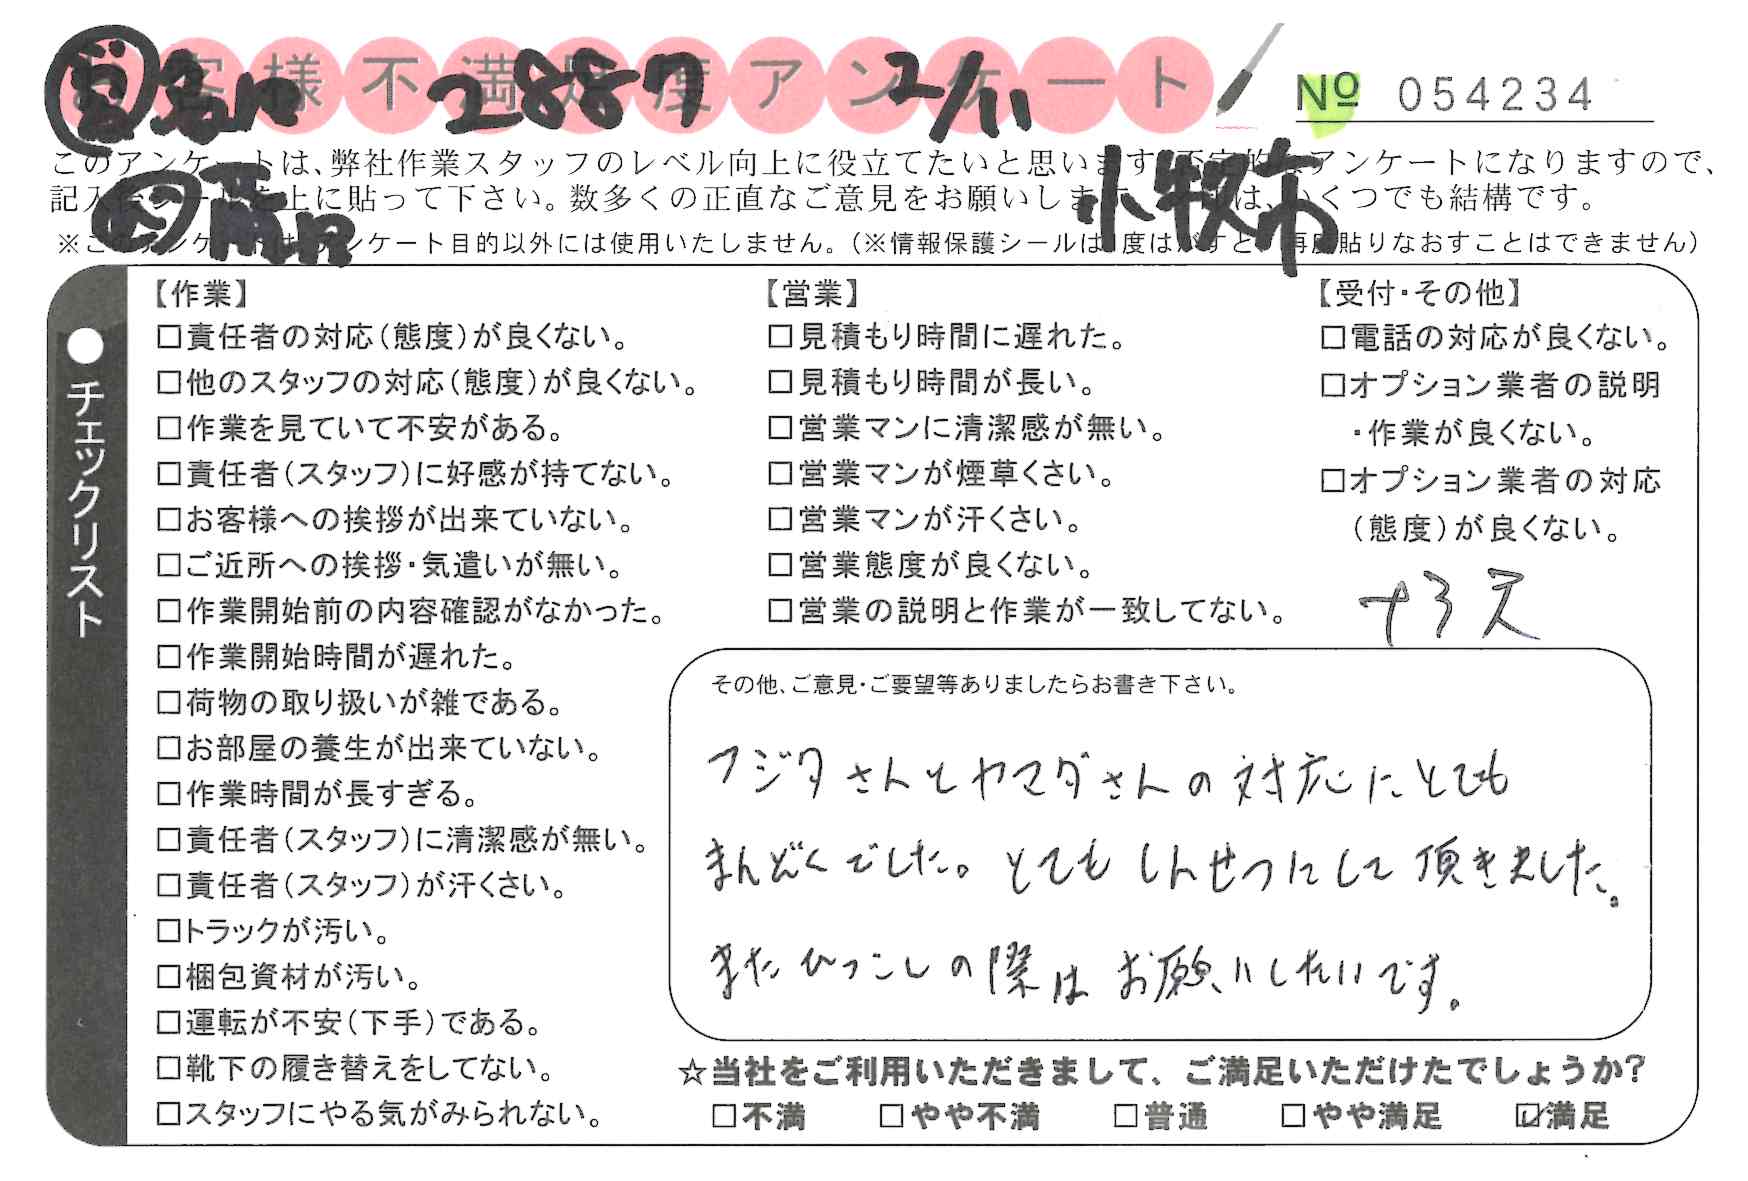 お客様不満足度アンケート
2887 2/11
№ 054234
このアンケートは、弊社作業スタッフのレベル向上に役立てたいと思います。否定的なアンケートになりますので、
記入後シールを上に貼って下さい。数多くの正直なご意見をお願いします。は、いくつでも結構です。
小牧市
※このアンケートは、アンケート目的以外には使用いたしません。(※情報保護シールは1度はがすと、再度貼りなおすことはできません)
●チェックリスト
【作業】
□責任者の対応(態度)が良くない。
□他のスタッフの対応(態度)が良くない。
□作業を見ていて不安がある。
□責任者(スタッフ)に好感が持てない。
□お客様への挨拶が出来ていない。
□ご近所への挨拶・気遣いが無い。
□作業開始前の内容確認がなかった。
□作業開始時間が遅れた。
□荷物の取り扱いが雑である。
□お部屋の養生が出来ていない。
□作業時間が長すぎる。
□責任者(スタッフ)に清潔感が無い。
□責任者(スタッフ)が汗くさい。
□トラックが汚い。
□梱包資材が汚い。
□運転が不安(下手)である。
□靴下の履き替えをしてない。
□スタッフにやる気がみられない。
【営業】
□見積もり時間に遅れた。
□見積もり時間が長い。
□営業マンに清潔感が無い。
□営業マンが煙草くさい。
□営業マンが汗くさい。
□営業態度が良くない。
□営業の説明と作業が一致してない。
【受付・その他】
□電話の対応が良くない。
□オプション業者の説明
・作業が良くない。
□オプション業者の対応
(態度)が良くない。
その他、ご意見・ご要望等ありましたらお書き下さい。
フジタさんとヤマダさんの対応にとても
まんどくでした。とてもしんせつにして頂きました。
またひっこしの際はお願いしたいです。
☆当社をご利用いただきまして、ご満足いただけたでしょうか?
□不満 □やや不満 □普通 □やや満足 ☑満足